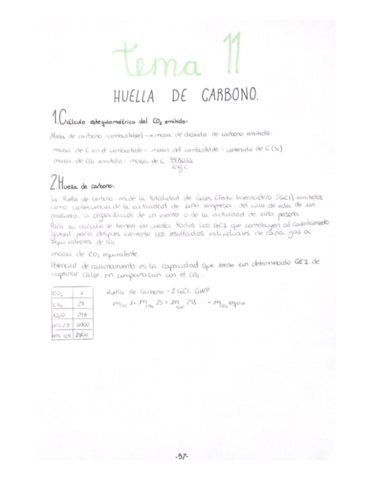 tema 11
HUELLA DE CARBONO.
1. Cálculo estequiométrico del CO2 emitido:
Masa de carbono (combustible) → masa de dióxido de carbono emitido.
masa de C en el combustible = masa del combustible · contenido de C (%)
masa de CO2 emitido = masa de C ·
2. Huella de carbono:
La huella de carbono mide la totalidad de Gases Efecto Invernadero (GEI) emitidos
como consecuencia de la actividad de una empresa, del ciclo de vida de un
producto, la organización de un evento o de la actividad de una persona.
Para su cálculo se tienen en cuenta todos los GEI que contribuyen al calentamiento
global, para después convertir los resultados individuales de cada gas a
equivalentes de CO2
masa de CO2 equivalente.
Potencial de calentamiento es la capacidad que tiene un determinado GEI de
capturar calor, en comparación con el CO2.
CO2 1
CH4 25
N2O 298
Huella de carbono = Σ GEI · GWP
-57-